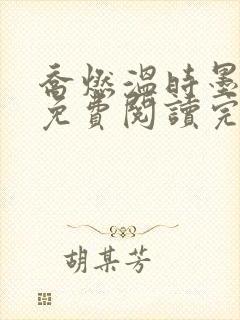 喬燃溫時墨
免費閱讀完
胡某芳